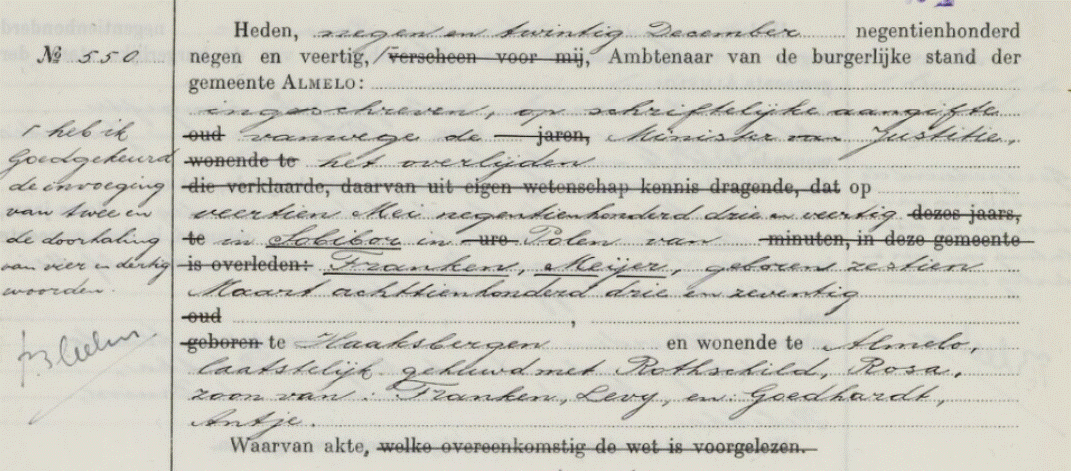 Heden, negen en twintig December negentienhonderd
№ 550
negen en veertig, ꜒ verscheen voor mij, Ambtenaar van de burgerlijke stand der
gemeente ALMELO:
ingeschreven, op schriftelijke aangifte
oud vanwege de jaren, Minister van Justitie,
wonende te het overlijden
die verklaarde, daarvan uit eigen wetenschap kennis dragende, dat op
veertien Mei negentienhonderd drie en veertig dezes jaars,
te in Sobibor in ure Polen van minuten, in deze gemeente
is overleden: Franken, Meijer, geboren zestien
Maart achttienhonderd drie en zeventig
oud ,
geboren te Haaksbergen en wonende te Almelo,
laatstelijk gehuwd met Rothschild, Rosa,
zoon van: Franken, Levy, en: Goedhardt,
Antje.
Waarvan akte, welke overeenkomstig de wet is voorgelezen.
꜒ heb ik
goedgekeurd
de invoeging
van twee en
de doorhaling
van vier en dertig
woorden.